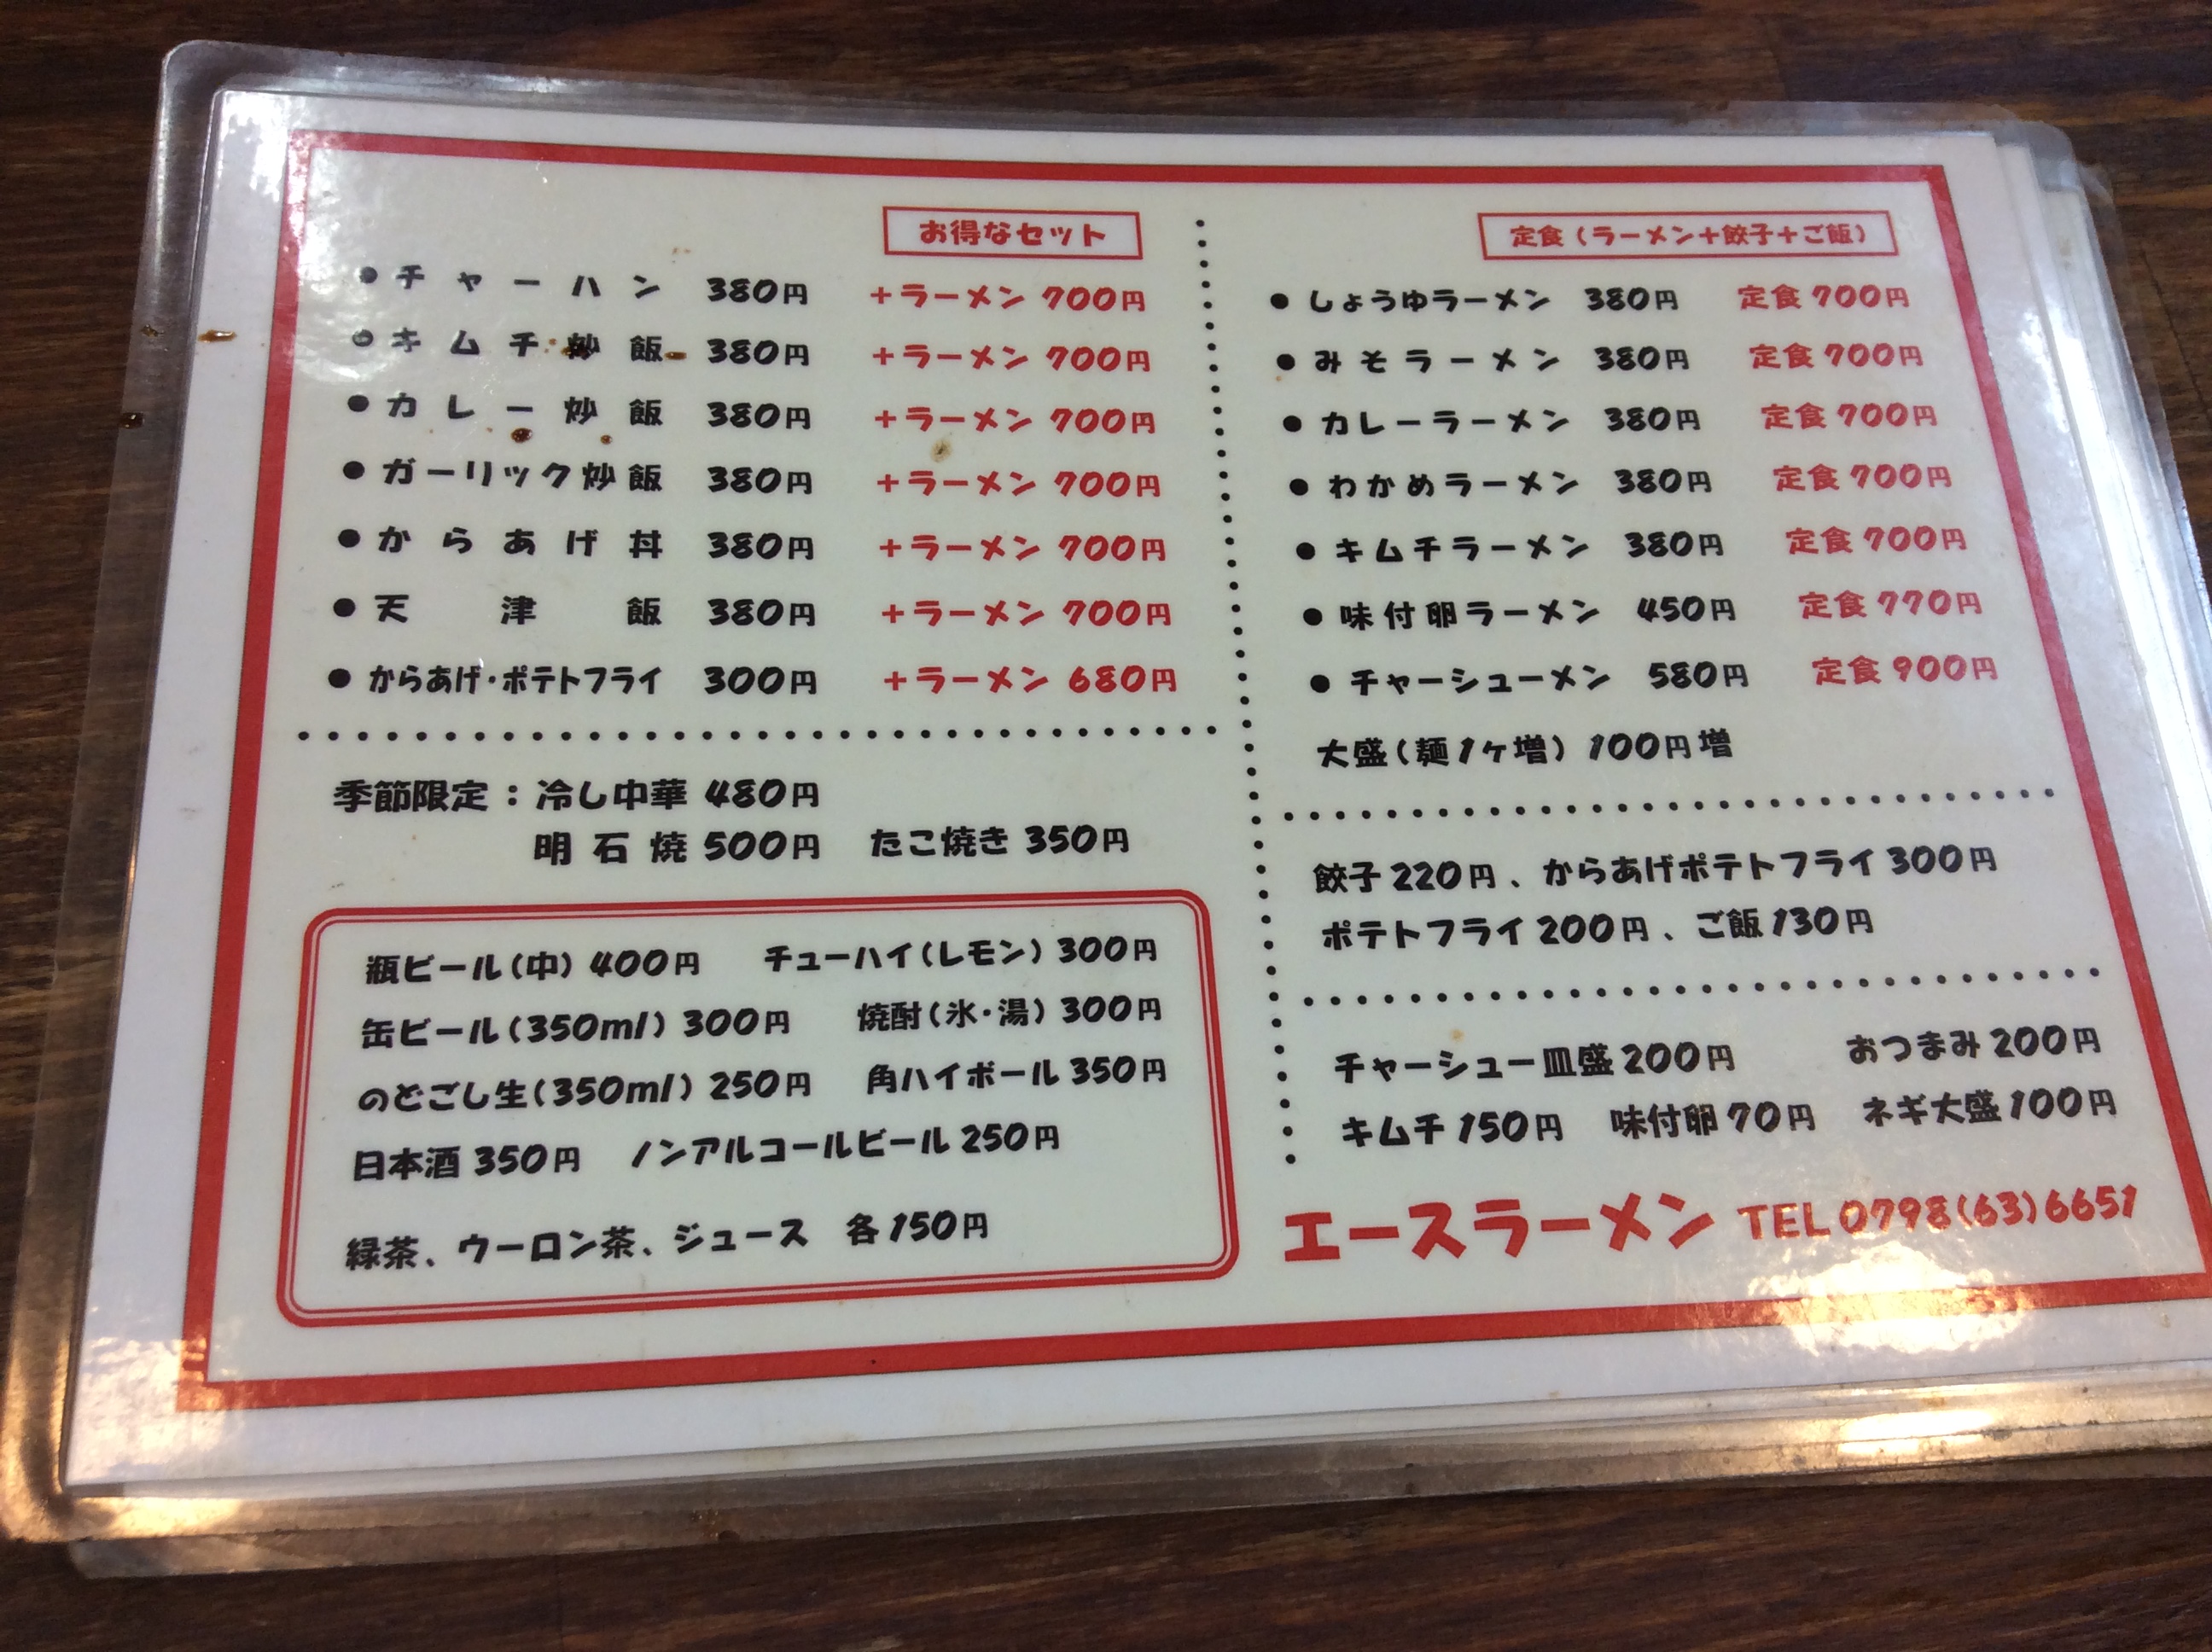 お得なセット
●チャーハン 380円 +ラーメン 700円
●キムチ炒飯 380円 +ラーメン 700円
●カレー炒飯 380円 +ラーメン 700円
●ガーリック炒飯 380円 +ラーメン 700円
●からあげ丼 380円 +ラーメン 700円
●天津飯 380円 +ラーメン 700円
●からあげ・ポテトフライ 300円 +ラーメン 680円
季節限定：冷し中華 480円
明石焼 500円 たこ焼き 350円
瓶ビール(中) 400円 チューハイ(レモン) 300円
缶ビール(350ml) 300円 焼酎(氷・湯) 300円
のどごし生(350ml) 250円 角ハイボール 350円
日本酒 350円 ノンアルコールビール 250円
緑茶、ウーロン茶、ジュース 各150円
定食(ラーメン+餃子+ご飯)
●しょうゆラーメン 380円 定食 700円
●みそラーメン 380円 定食 700円
●カレーラーメン 380円 定食 700円
●わかめラーメン 380円 定食 700円
●キムチラーメン 380円 定食 700円
●味付卵ラーメン 450円 定食 770円
●チャーシューメン 580円 定食 900円
大盛(麺1ヶ増) 100円増
餃子 220円、からあげポテトフライ 300円
ポテトフライ 200円、ご飯 130円
チャーシュー皿盛 200円 おつまみ 200円
キムチ 150円 味付卵 70円 ネギ大盛 100円
エースラーメン TEL 0798(63)6651